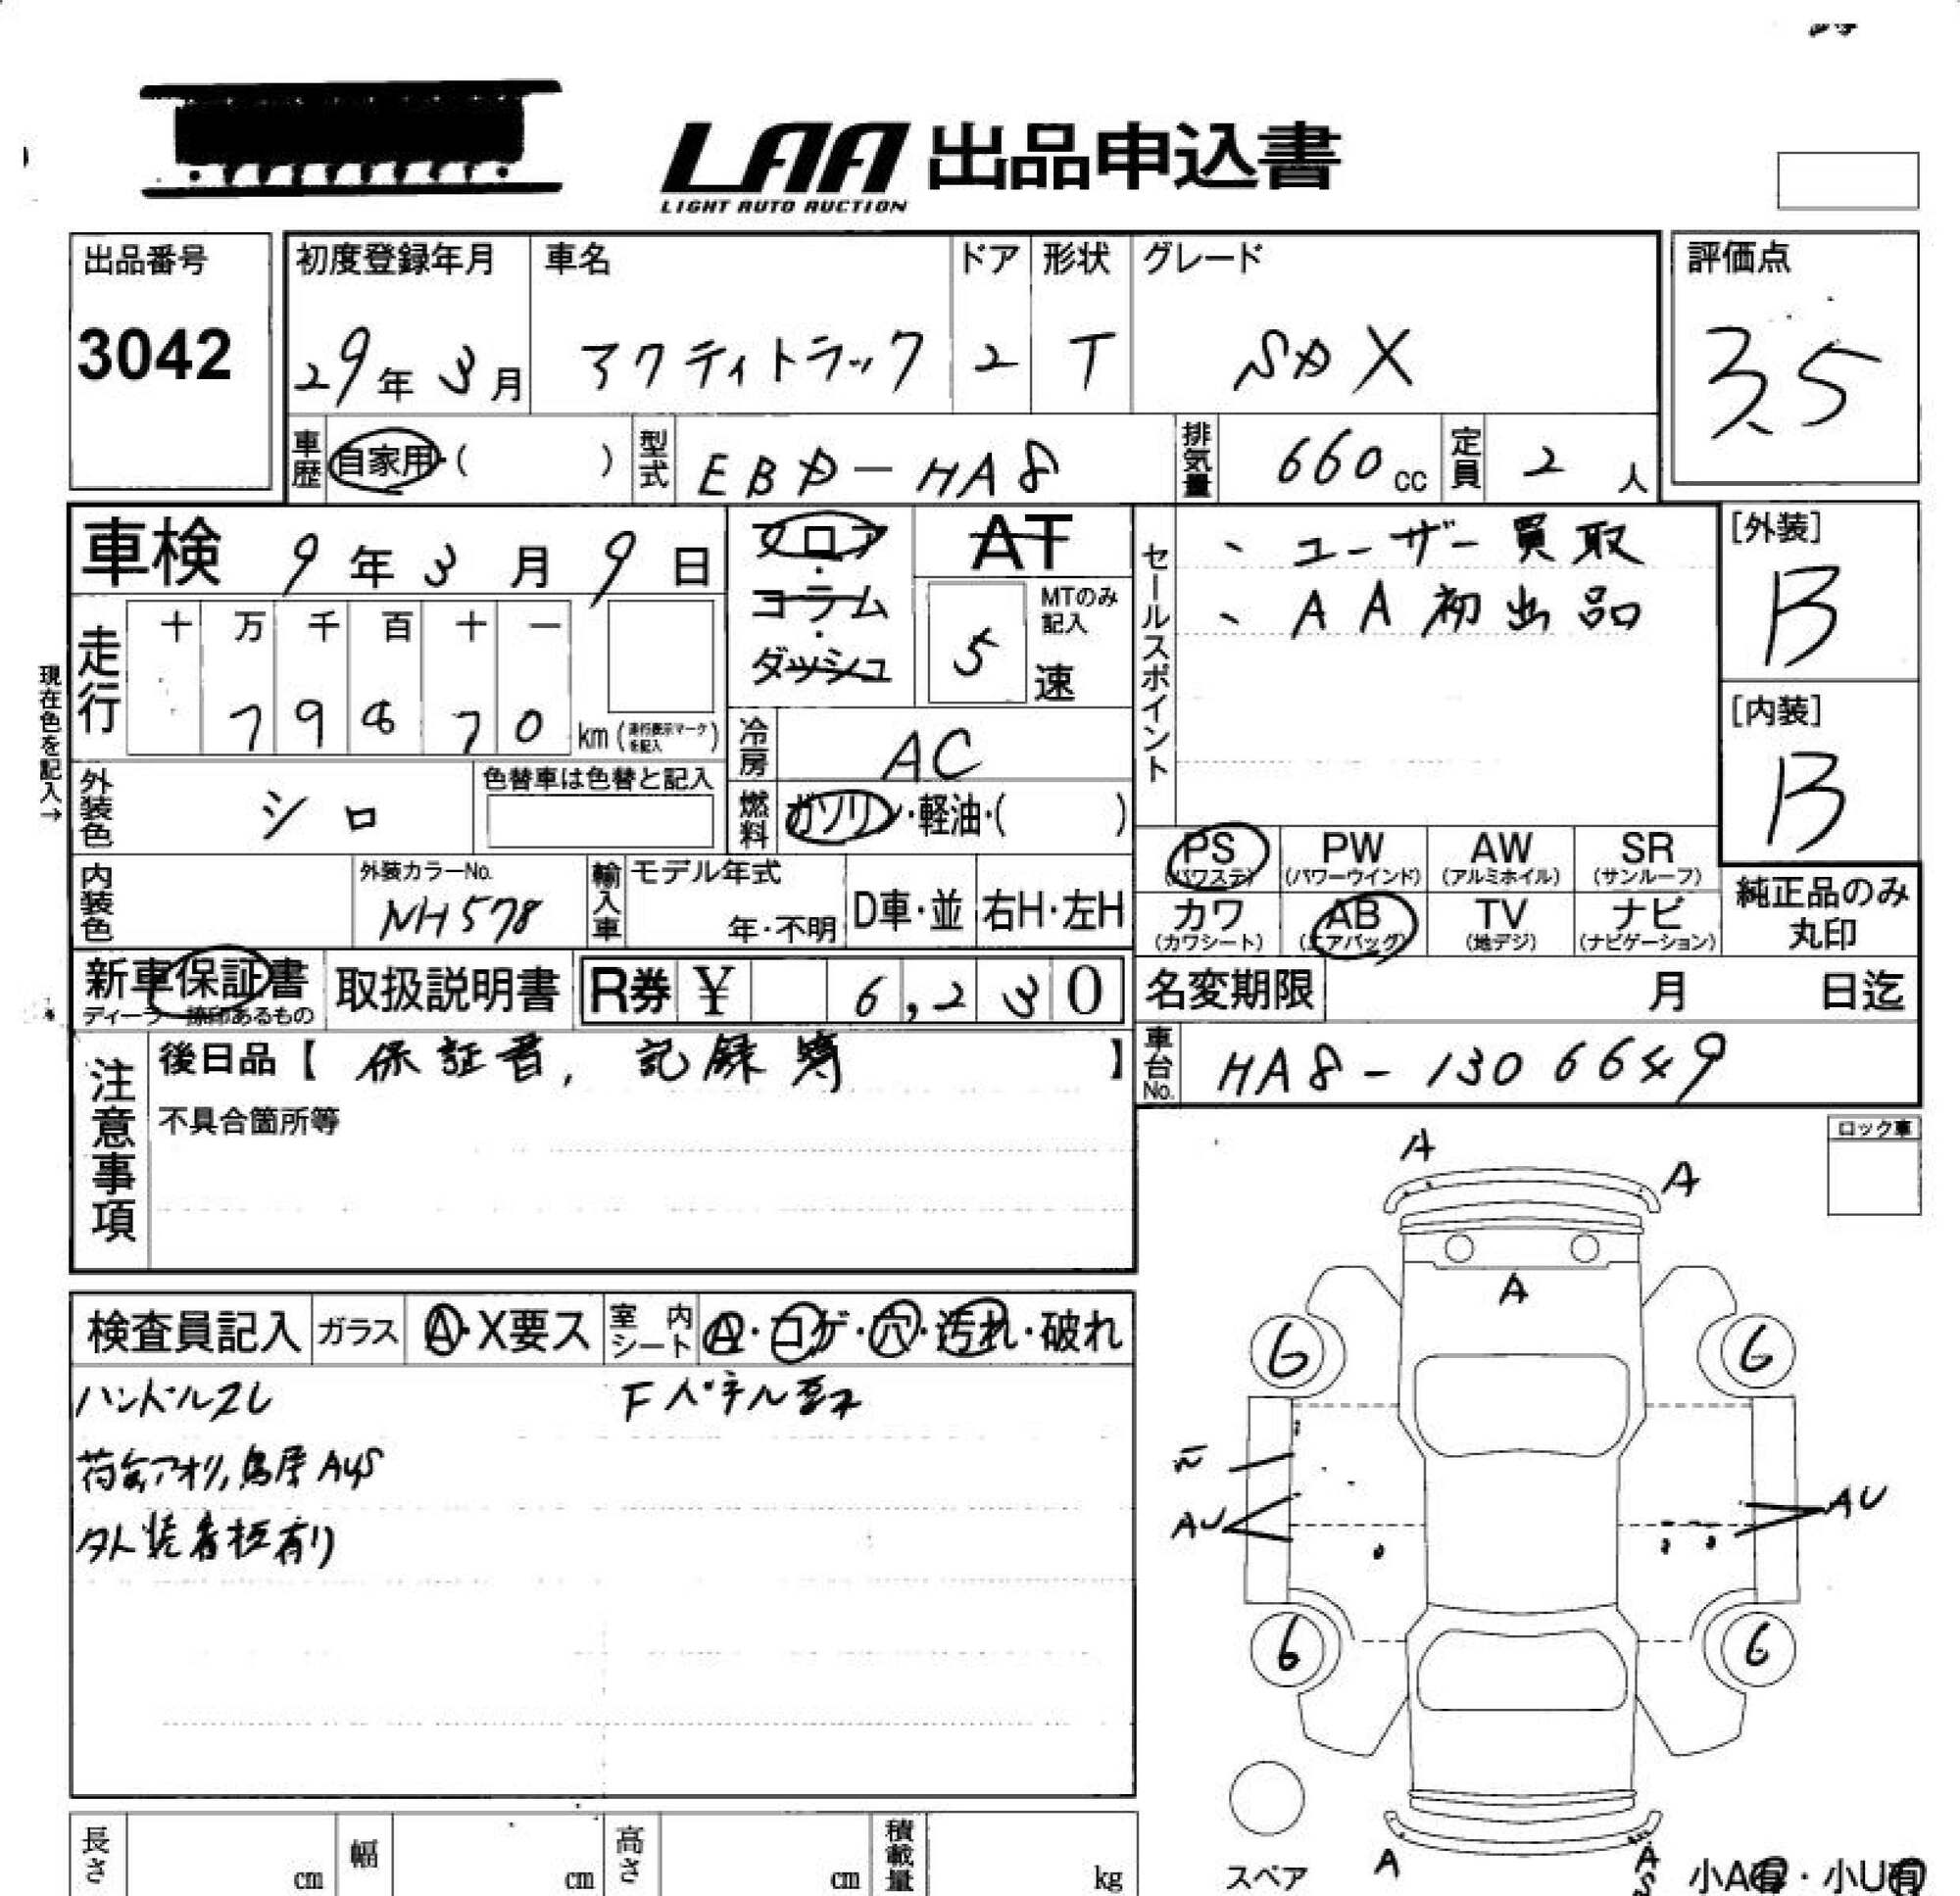 LAA 出品申込書
LIGHT AUTO AUCTION
出品番号
3042
初度登録年月
29年3月
車名
アクティトラック
ドア
2
形状
T
グレード
SDX
評価点
3.5
車歴
自家用・( )
型式
EBD-HA8
排気量
660cc
定員
2人
車検 9年3月9日
フロア・コラム・ダッシュ
AT
MTのみ記入
5速
セールスポイント
、ユーザー買取
、AA初出品
[外装]
B
[内装]
B
現在色を記入→
走行
十 万 千 百 十 一
7 9 8 7 0 km (走行表示マークを記入)
冷房
AC
燃料
ガソリン・軽油・( )
外装色
シロ
色替車は色替と記入
内装色
外装カラーNo.
NH578
輸入車
モデル年式
年・不明
D車・並
右H・左H
PS (パワステ)
PW (パワーウインド)
AW (アルミホイル)
SR (サンルーフ)
カワ (カワシート)
AB (エアバッグ)
TV (地デジ)
ナビ (ナビゲーション)
純正品のみ丸印
新車保証書
ディーラー捺印あるもの
取扱説明書
R券 ¥ 6,230
名変期限 月 日迄
車台No.
HA8-1306649
注意事項
後日品【 保証書, 記録簿 】
不具合箇所等
ロック車
検査員記入
ガラス
A・X要ス
室内シート
A・コゲ・穴・汚れ・破れ
ハンドルスレ
Fパネル歪
荷台アオリ,鳥居AUS
外装着板有り
A
A
A
6
6
AU
AU
6
6
A
A
S
スペア
小A有・小U有
長さ cm
幅 cm
高さ cm
積載量 kg